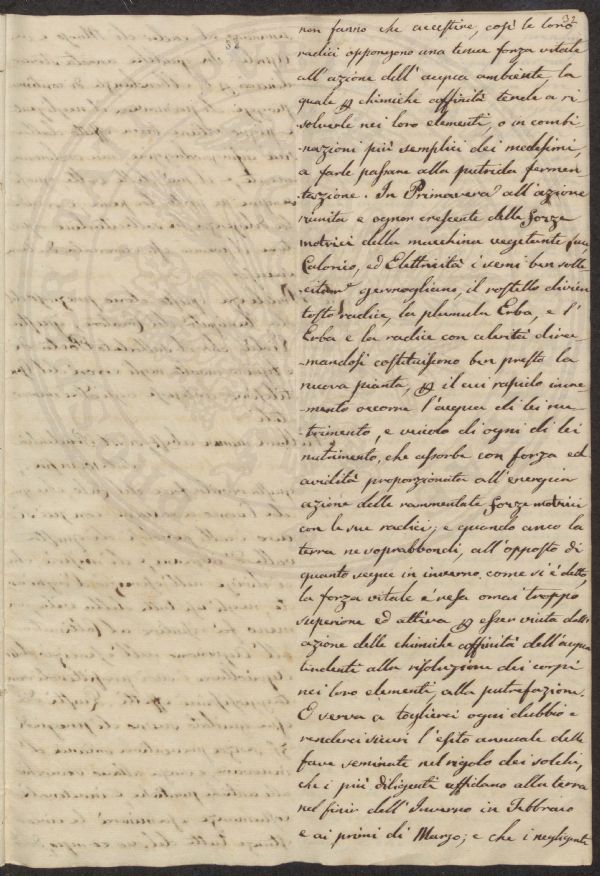 32
non fanno che accestire, così le loro
radici oppongono una tenue forza vitale
all'azione dell'acqua ambiente, la
quale chimiche affinità tende a ri
solverle nei loro elementi, o in combi
nazioni più semplici dei medesimi,
a farle passare alla putrida fermen
tazione. In Primavera all'azione
riunita e ognor crescente delle forze
motrici della macchina vegetante
Calorico, ed Elettricità i semi ben solle
germogliano, il rostello divien
tosto radice, la plumula Erba, e l'
Erba e la radice con celerità dira
mandosi costituiscono ben presto la
nuova pianta, il cui rapido incre
mento occorre l'acqua di lei nu
trimento, e veicolo di ogni di lei
nutrimento, che assorbe con forza ed
avidità proporzionata all'energica
azione delle rammentate forze motrici
con le sue radici; e quando anco la
terra ne soprabbondi, all'opposto di
quanto segue in inverno come si è detto,
la forza vitale è resa omai troppo
superiore ed attiva esser vinta dall'
azione delle chimiche affinità dell'acqua
tendenti alla risoluzione dei corpi
nei loro elementi alla putrefazione.
E serva a toglierci ogni dubbio e
renderci sicuri l'esito annuale delle
fave seminate nel rigolo dei solchi,
che i più diligenti affidano alla terra
nel finir dell'Inverno in Febbraio
e ai primi di Marzo; e che i negligenti